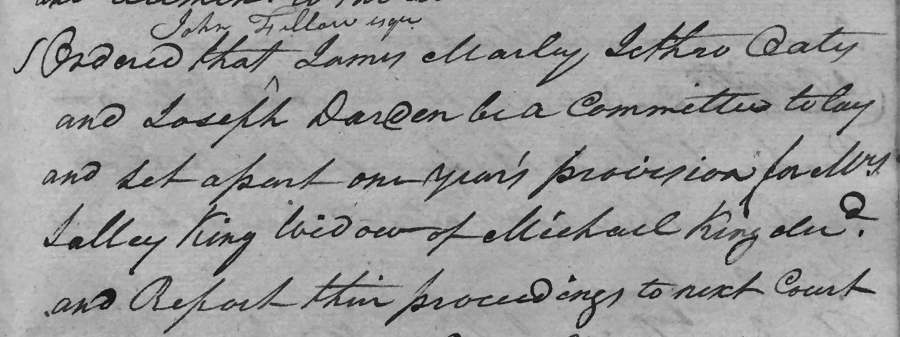 John Fellow esqr
Ordered that ^ James Marley, Jethro Oats
and Joseph Darden be a Committee to lay
and set apart one Year's provision for Mrs.
Salley King Widow of Michael King decd.
and Report thier proceedings to next Court